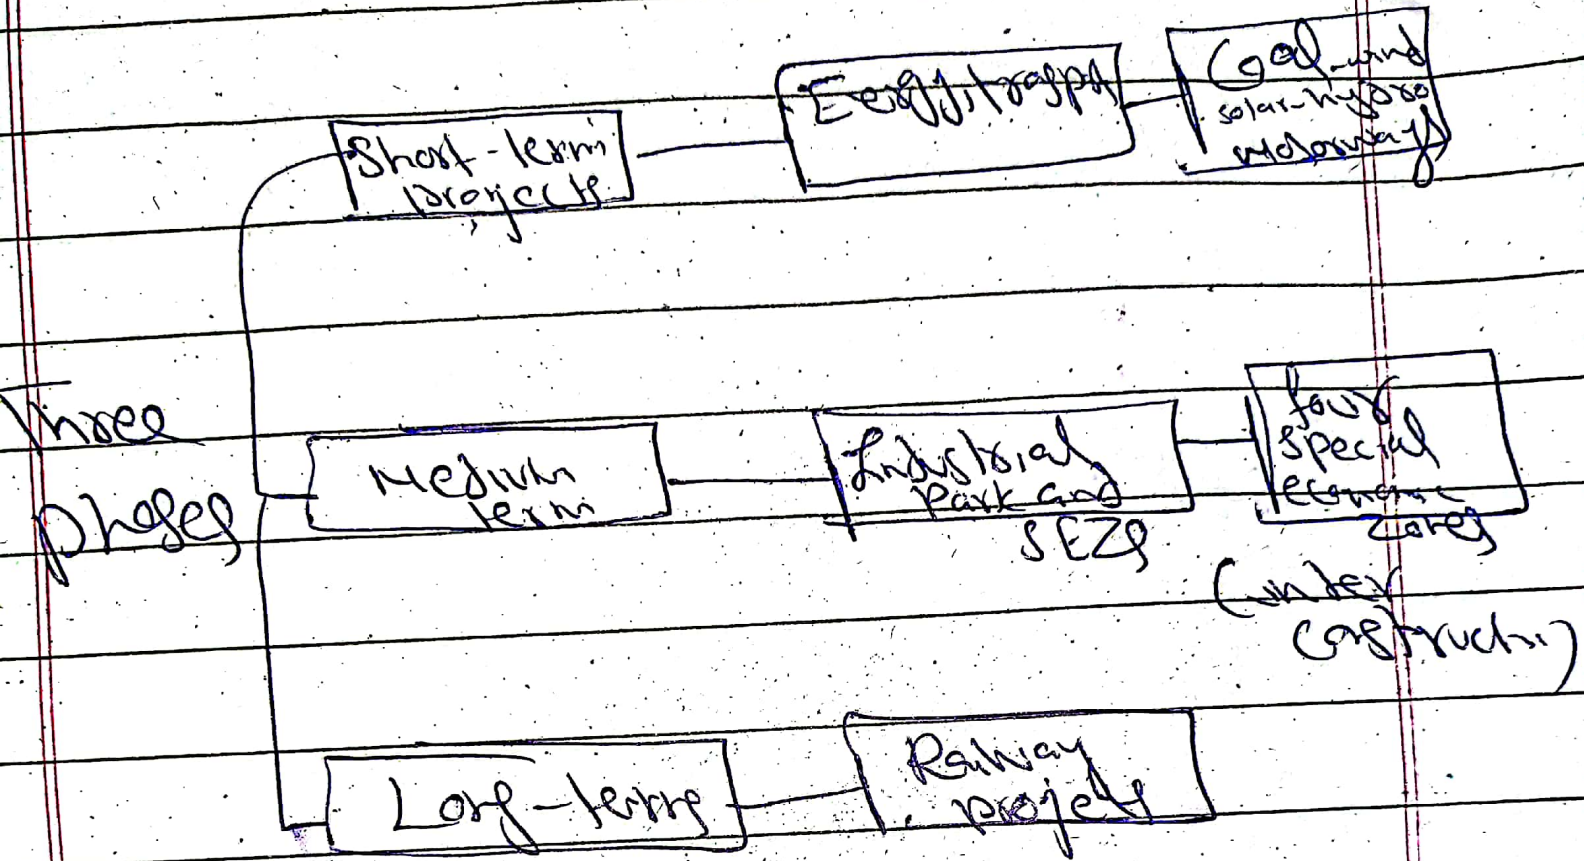 Short-term
projects
Eergy, traspt
Coal-wind
solar-hydro
motorways
Three
phases
Medium
term
Industrial
Park and
SEZs
four
special
economic
zones
(under
construction)
Long-term
Railway
projects